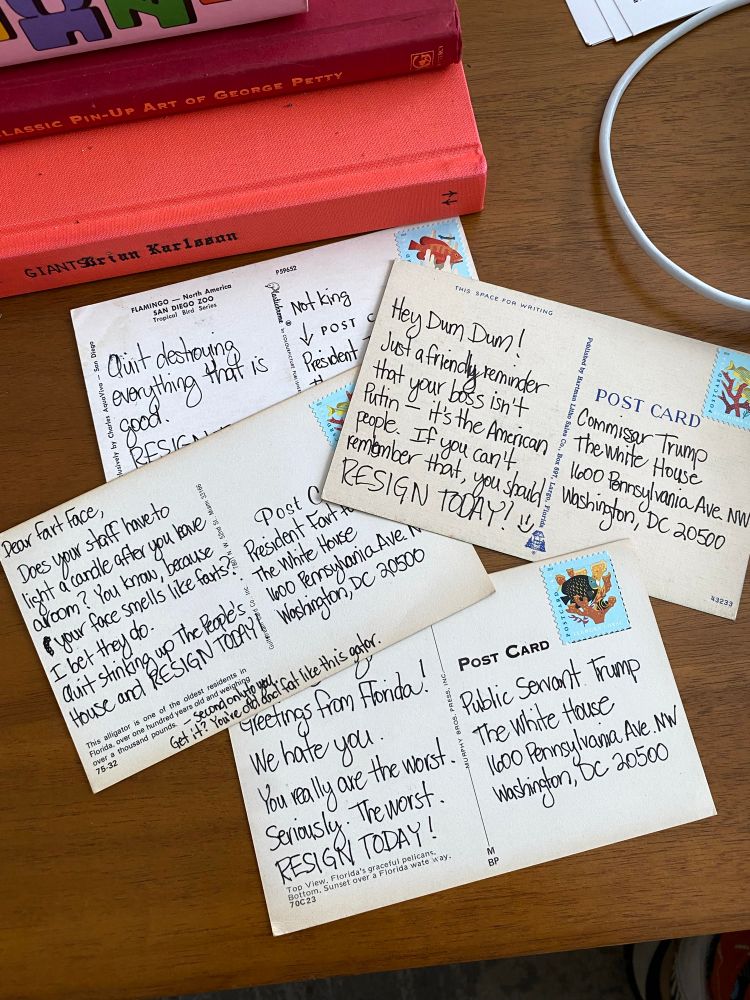 CLASSIC PIN-UP ART OF GEORGE PETTY
GIANTS Brian Karlsson
FLAMINGO — North America
SAN DIEGO ZOO
Tropical Bird Series
P59652
Quit destroying
everything that is
good.
RESIGN
Not King
↓ POST C
President
THIS SPACE FOR WRITING
Hey Dum Dum!
Just a friendly reminder
that your boss isn't
Putin — it's the American
people. If you can't
remember that, you should
RESIGN TODAY!
Published by Hartman Litho Sales Co., Box 697, Largo, Florida
POST CARD
Commissar Trump
The White House
1600 Pennsylvania Ave. NW
Washington, DC 20500
43233
Dear Fart Face,
Does your staff have to
light a candle after you leave
a room? You know, because
your face smells like farts?
I bet they do.
Quit stinking up The People's
House and RESIGN TODAY
This alligator is one of the oldest residents in
Florida, over one hundred years old and weighing
over a thousand pounds. — second only to you
75-32
Get it? You're old and fat like this gator.
POST C
President Fart
The White House
1600 Pennsylvania Ave. N
Washington, DC 20500
Greetings from Florida!
We hate you.
You really are the worst.
Seriously. The worst.
RESIGN TODAY!
Top View, Florida's graceful pelicans.
Bottom, Sunset over a Florida wate way.
70C23
MURPHY BROS. PRESS, INC.
M
BP
POST CARD
Public Servant Trump
The White House
1600 Pennsylvania Ave. NW
Washington, DC 20500